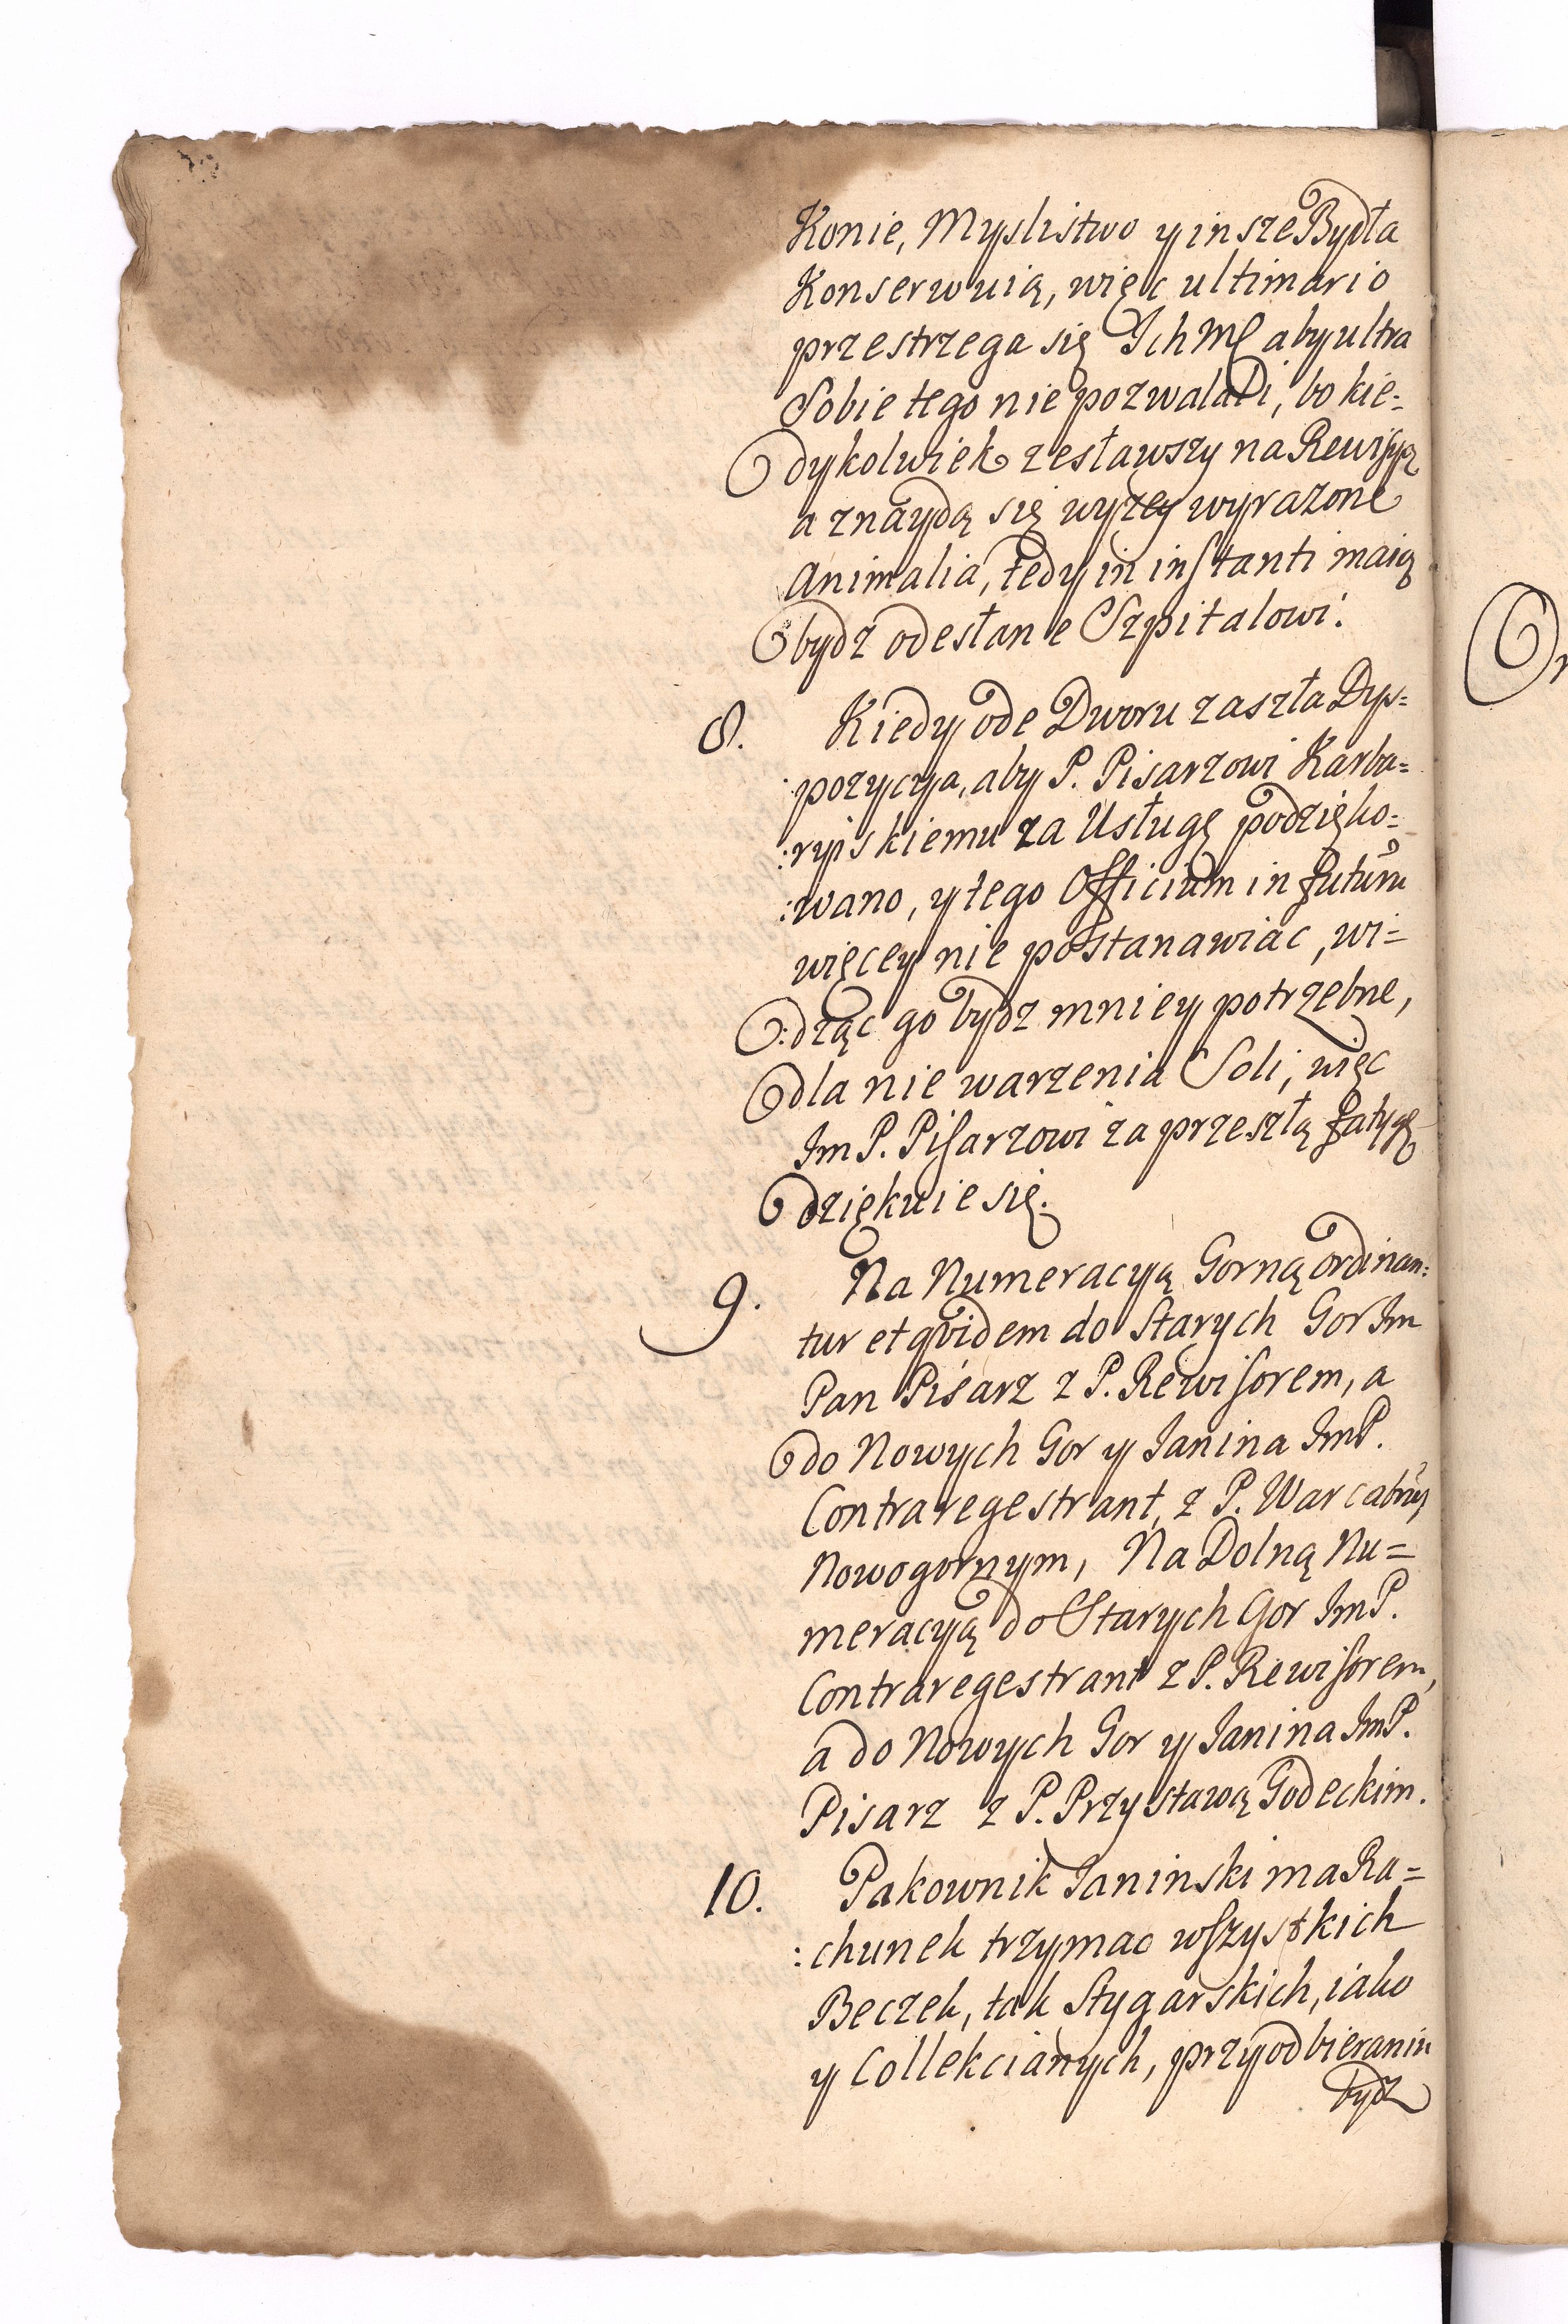 Konie, Myslistwo y insze Bydła
Konserwuią, więc ultimario
przestrzega się Ich Mć aby ultra
Sobie tego nie pozwalali, bo kie=
dykolwiek zesławszy na Rewisyą
a znaydą się wyzey wyrazone
Animalia, tedy in instanti maią
bydz odesłane Szpitalowi.
8. Kiedy ode Dworu zaszła Dys=
pozycya, aby P. Pisarzowi Karba=
:ryiskiemu za Usługę podzięko=
:wano, y tego Officium in futurũ
więcey nie postanawiac, wi=
:dząc go bydz mniey potrzebne,
dla nie warzenia Soli, więc
Im P. Pisarzowi za przeszłą fatygę
dziękuie się.
9. Na Numeracyą Gorną ordinan=
tur et qvidem do Starych Gor Im
Pan Pisarz z P. Rewisorem, a
do Nowych Gor y Janina ImP.
Contraregestrant, z P. Warcabnym
Nowogornym, Na Dolną Nu=
meracyą do Starych Gor ImP.
Contraregestrant z P. Rewisorem,
a do Nowych Gor y Janina ImP.
Pisarz z P. Przystawą Godeckim.
10. Pakownik Janinski ma Ra=
:chunek trzymac wszystkich
Beczek, tak Stygarskich, iako
y Collekcianych, przy odbieraniu
bydz